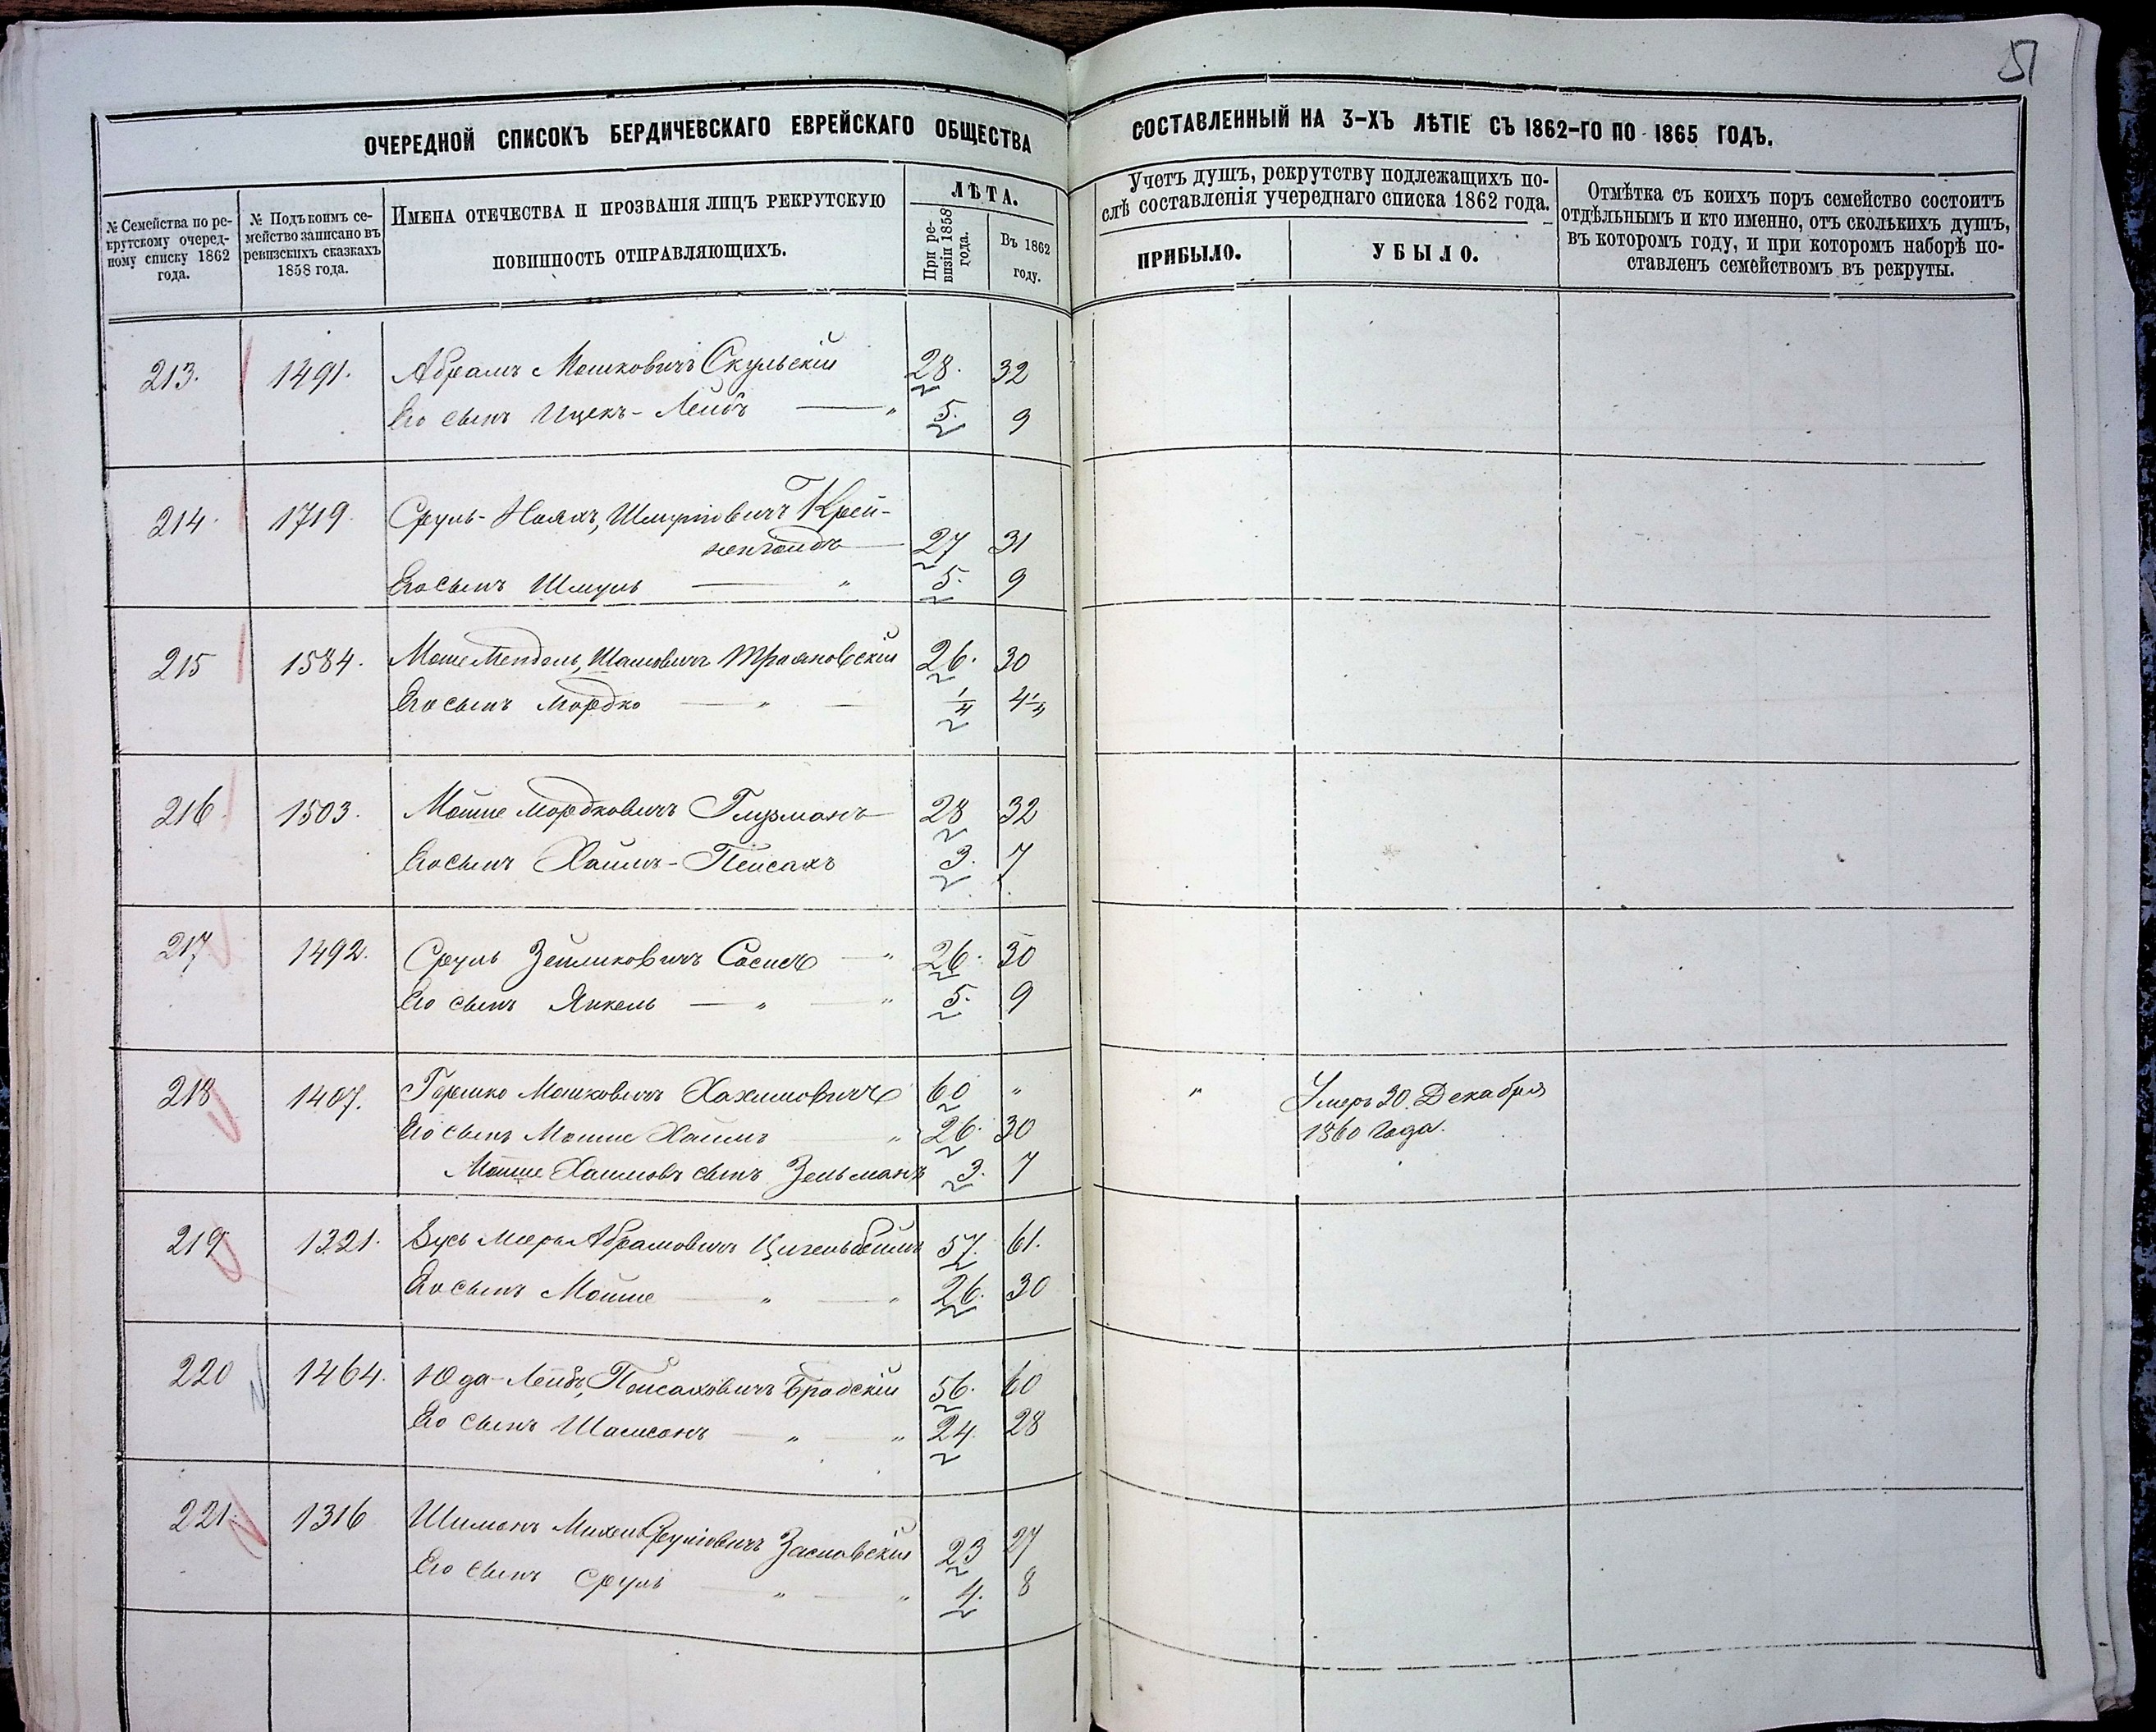 51
ОЧЕРЕДНОЙ СПИСОКЪ БЕРДИЧЕВСКАГО ЕВРЕЙСКАГО ОБЩЕСТВА
СОСТАВЛЕННЫЙ НА 3-ХЪ ЛѢТІЕ СЪ 1862-ГО ПО 1865 ГОДЪ.
№ Семейства по ре-
крутскому очеред-
ному списку 1862
года.
№ Подъ коимъ се-
мейство записано въ
ревизскихъ сказкахъ
1858 года.
Имена отечества и прозванія лицъ рекрутскую
повинность отправляющихъ.
ЛѢТА.
При ре-
визіи 1858
года.
Въ 1862
году.
Учетъ душъ, рекрутству подлежащихъ по-
слѣ составленія учереднаго списка 1862 года.
ПРИБЫЛО.
УБЫЛО.
Отмѣтка съ коихъ поръ семейство состоитъ
отдѣльнымъ и кто именно, отъ сколькихъ душъ,
въ которомъ году, и при которомъ наборѣ по-
ставленъ семействомъ въ рекруты.
213. 1491. Абрамъ Мошковичъ Скульскій 28. 32
Его сынъ Ицекъ-Лейбъ — " 5. 9
214. 1719. Сруль-Ноахъ, Шмулiовичъ Крей-
27 31
Его сынъ Шмуль — " 5. 9
215 1584. Моше Мендель, Шмовичъ Трояновскій 26. 30
Его сынъ Мордко — " — 1/4 4 1/4
216. 1503. Мойше Мордковичъ Глузманъ 28 32
Его сынъ Хаимъ-Пейсахъ 3. 7
217 1492. Сруль Зейликовичъ 26. 30
Его сынъ Янкель — " — " 5. 9
218 1407. Гершко Мошковичъ Хахимовичъ 60 " " Умеръ 20. Декабря
Его сынъ Мойше Хаимъ " 26. 30 1860 года.
Мойше Хаимовъ сынъ Зельманъ 3. 7
219 1321. Зусь Мееръ Абрамовичъ Цигельбеймъ 57. 61.
Его сынъ Мойше — " — " 26. 30
220 1464. Юда-Лейбъ, Пейсаховичъ Бродскій 56. 60
Его сынъ Шамсонъ — " — " 24. 28
221. 1316 Шимонъ Михель Сруліовичъ Заславскій 23 27
Его сынъ Сруль " — " 4. 8